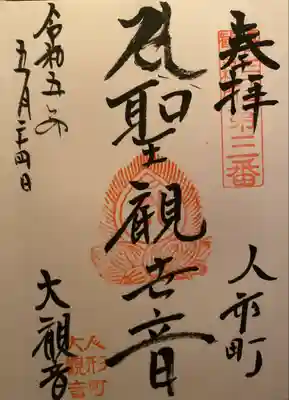 奉拝
第三番
人形町
聖観世音
大観音
人形町
大観音
令和五年
五月二十四日